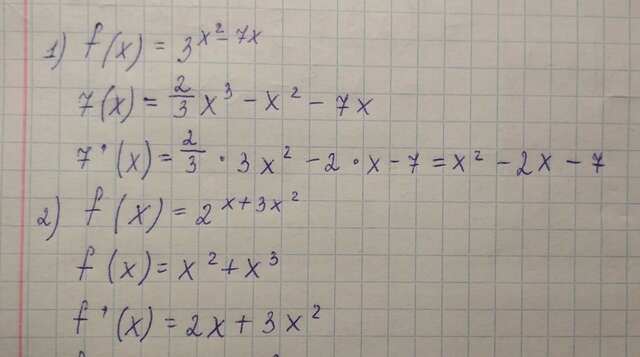 1) f(x) = 3^{x^2 - 7x}
7(x) = \frac{2}{3} x^3 - x^2 - 7x
7'(x) = \frac{2}{3} · 3x^2 - 2 · x - 7 = x^2 - 2x - 7
2) f(x) = 2^{x + 3x^2}
f(x) = x^2 + x^3
f'(x) = 2x + 3x^2